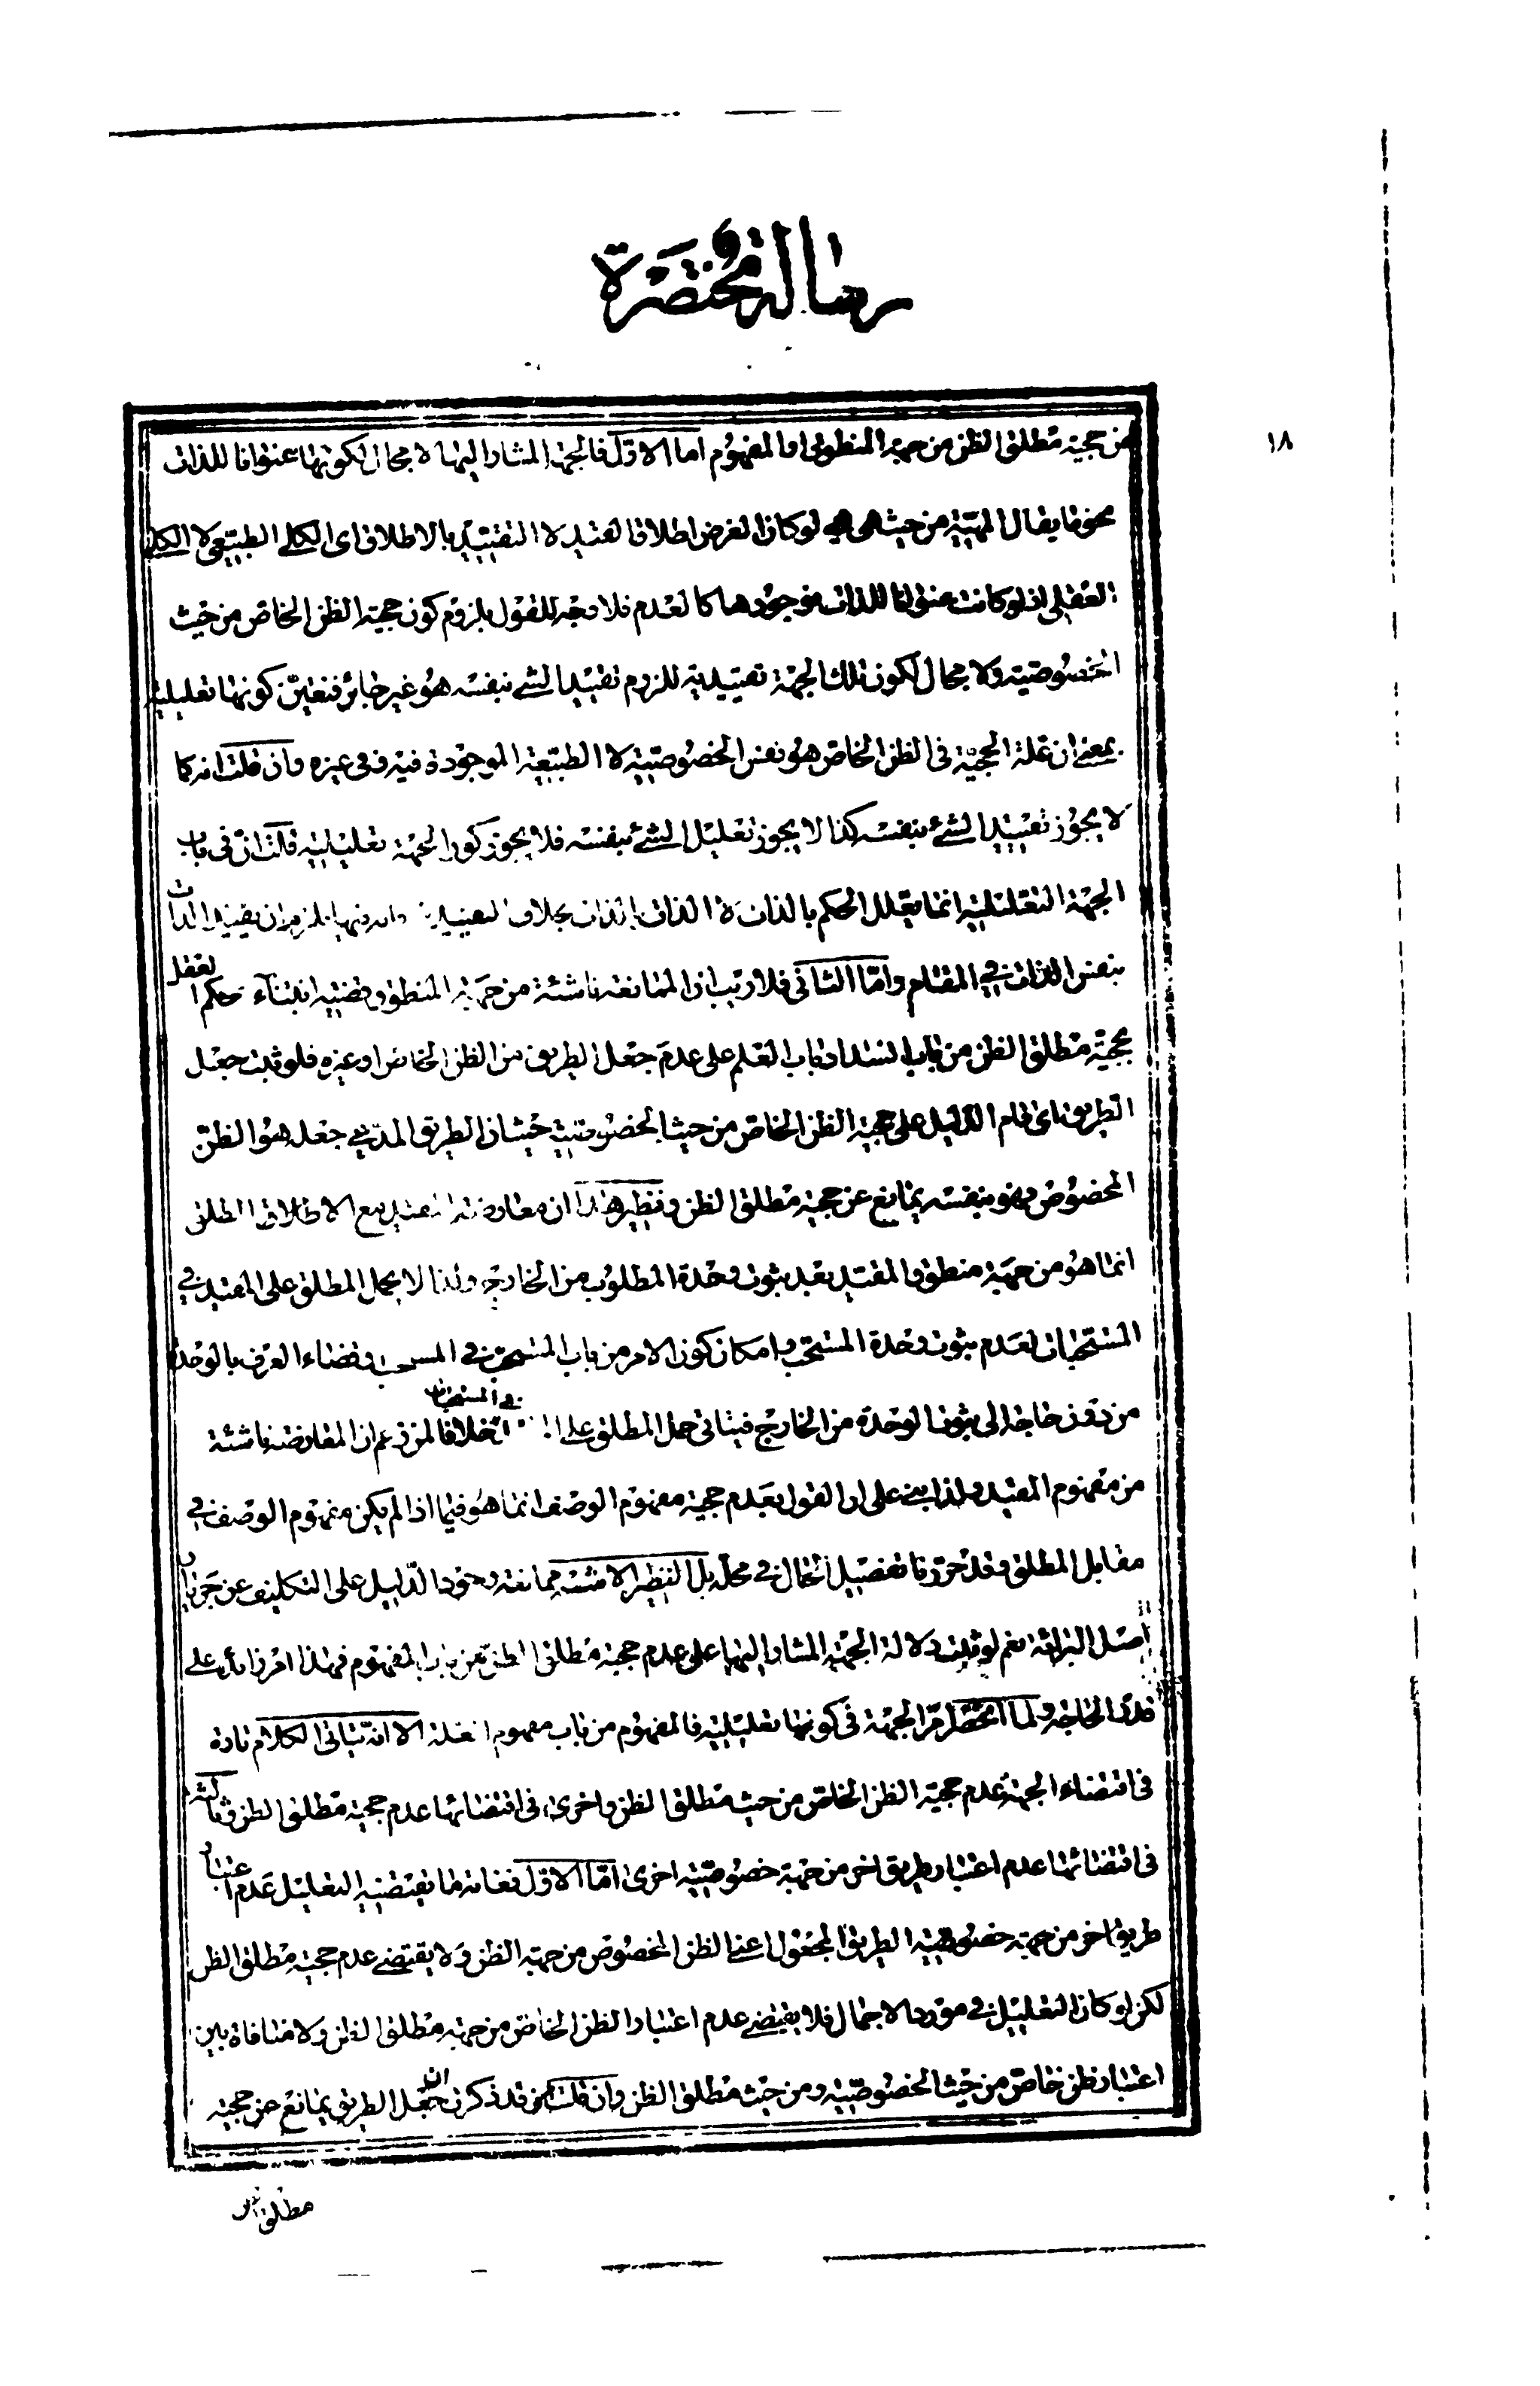 رسالة مختصرة
١٨
عن حجية مطلق الظن من جهة المنطوق او المفهوم اما الاوّل فالجهة المشار اليها لا مجال لكونها عنوانا للذات
نحو ما يقال المهيّة من حيث هى هى لو كان الغرض اطلاق القيد لا التقييد بالاطلاق اى الكلى الطبيعى لا الكلى
العقلى اذ لو كانت عنوانا للذات فوجودها كالعدم فلا وجه للقول بلزوم كون حجية الظن الخاص من حيث
الخصوصية ولا مجال لكون تلك الجهة تقييدية للزوم تقييد الشئ بنفسه هو غير جائز فتعيّن كونها تعليلية
بمعنى ان علة الحجية فى الظن الخاص هو نفس الخصوصيّة لا الطبيعة الموجودة فيه وفى غيره وان قلت انه كما
لا يجوز تقييد الشئ بنفسه كذا لا يجوز تعليل الشئ بنفسه فلا يجوز كون الجهة تعليلية قلت انّ فى باب
الجهة التعليلية انما يعلل الحكم بالذات لا الذات بالذات بخلاف التقييدية فانه فيها يلزم ان يقيد الذات
بنفس الذات فى المقام وامّا الثانى فلا ريب ان الممانعة ناشئة من جهة المنطوق وقضيته ابتناء حكم العقل
بحجية مطلق الظن من باب انسداد باب العلم على عدم جعل الطريق من الظن الخاص او غيره فلو ثبت جعل
الطريق اى قام الدليل على حجية الظن الخاص من حيث الخصوصية حيث ان الطريق المدعى جعله هو الظن
المخصوص وهو بنفسه يمانع عن حجية مطلق الظن ونظير هذا ان معارضة التقييد مع الاطلاق المطلق
انما هو من جهة منطوق المقيد بعد ثبوت وحدة المطلوب من الخارج ولذا لا يحمل المطلق على المقيد فى
المستحبات لعدم ثبوت وحدة المستحب وامكان كون الامر من باب المستحب فى المستحب وقضاء العرف بالوحدة
من دون حاجة الى ثبوت الوحدة من الخارج فيتأتى حمل المطلق على المقيد فى المستحبات خلافا لمن زعم ان المعارضة ناشئة
من مفهوم المقيد ولذا بنى على ان القول بعدم حجية مفهوم الوصف انما هو فيما اذا لم يكن مفهوم الوصف فى
مقابل المطلق وقد حررنا تفصيل الحال فى محله بل النظير الامتن ممانعة وجود الدليل على التكليف عن جريان
اصل البرائة نعم لو ثبت دلالة الجهة المشار اليها على عدم حجية مطلق الظن من باب المفهوم فهذا امر زائد على
قدر الحاجة ولما انحصر امر الجهة فى كونها تعليلية فالمفهوم من باب مفهوم العلة الا انه يتأتى الكلام تارة
فى اقتضاء الجهة عدم حجية الظن الخاص من حيث مطلق الظن واخرى فى اقتضائها عدم حجية مطلق الظن وثالثة
فى اقتضائها عدم اعتبار طريق اخر من جهة خصوصية اخرى امّا الاوّل فغاية ما يقتضيه التعليل عدم اعتبار
طريق اخر من جهة خصوصيّة الطريق المجعول اعنى الظن المخصوص من جهة الظن ولا يقتضى عدم حجية مطلق الظن
لكن لو كان التعليل فى مورد الاجمال فلا يقتضى عدم اعتبار الظن الخاص من جهة مطلق الظن ولا منافاة بين
اعتبار ظن خاص من حيث الخصوصيّة ومن حيث مطلق الظن وان قلت قد ذكرت ان جعل الطريق يمانع عن حجية
مطلق